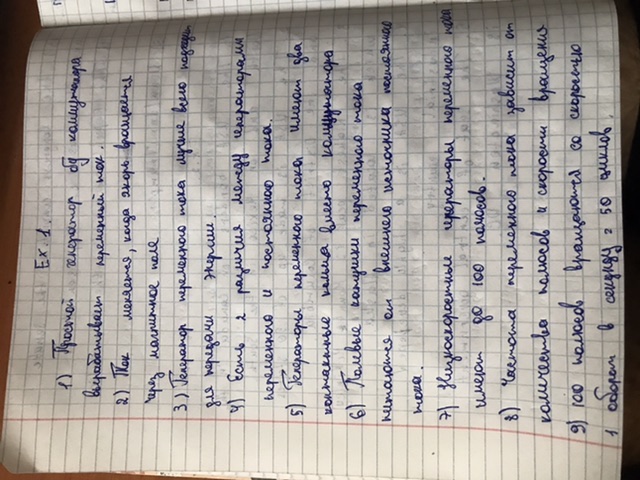 Ex 1.
1) Простой генератор бу коммутатора
вырабатывает переменный ток.
2) Ток меняется, когда якорь вращается
через магнитное поле
3) Генератор переменного тока лучше всего подходит
для передачи энергии.
4) Есть 2 различия между генераторами
переменного и постоянного тока.
5) Генераторы переменного тока имеют два
контактные кольца вместо коммутатора
6) Полевые катушки переменного тока
питаются от внешнего источника постоянного
тока.
7) Низкоскоростные генераторы переменного тока
имеют до 100 полюсов.
8) Частота переменного тока зависит от
количества полюсов и скорости вращения
9) 100 полюсов вращаются со скоростью
1 оборот в секунду = 50 циклов.